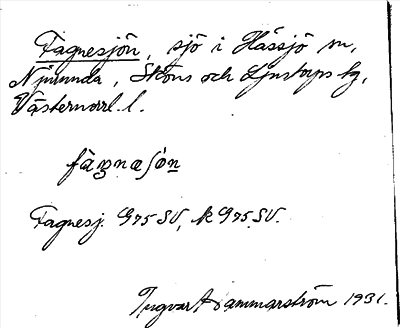 Fagnesjön, sjö i Hässjö sn,
Njurunda, Sköns och Ljustorps tg,
Västernorrl. l.
fàŋnæʃö̀n
Fagnesj. G75 SV, k G75 SV.
Ingvar Hammarström 1931.